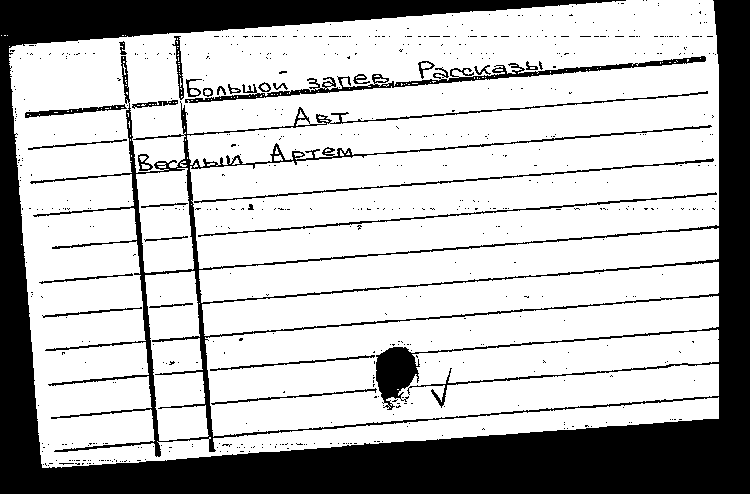 Большой запев. Рассказы.
Авт.
Веселый, Артем.